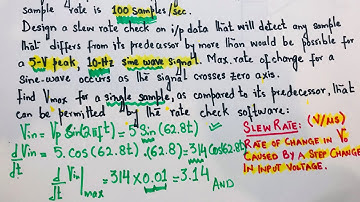 sample rate is 100 Samples/Sec.
Design a slew rate check on i/p data that will detect any sample
that differs from its predeassor by more than would be possible for
a 5-V peak, 10-Hz sine wave signal. Max. rate of change for a
Sine-wave occurs as the signal crosses zero axis.
find Vmax for a single sample, as compared to its predecessor, that
can be permitted by the rate check software:
Vin = Vp Sin(2πft) = 5 Sin(62.8t)
d/dt Vin = 5. cos(62.8t) .(62.8) = 314 Cos62.8t
d/dt Vin|max = 314 × 0.01 = 3.14 AND
SLEW RATE: (V/μs)
RATE OF CHANGE IN Vo
CAUSED BY A STEP CHANGE
IN INPUT VOLTAGE.